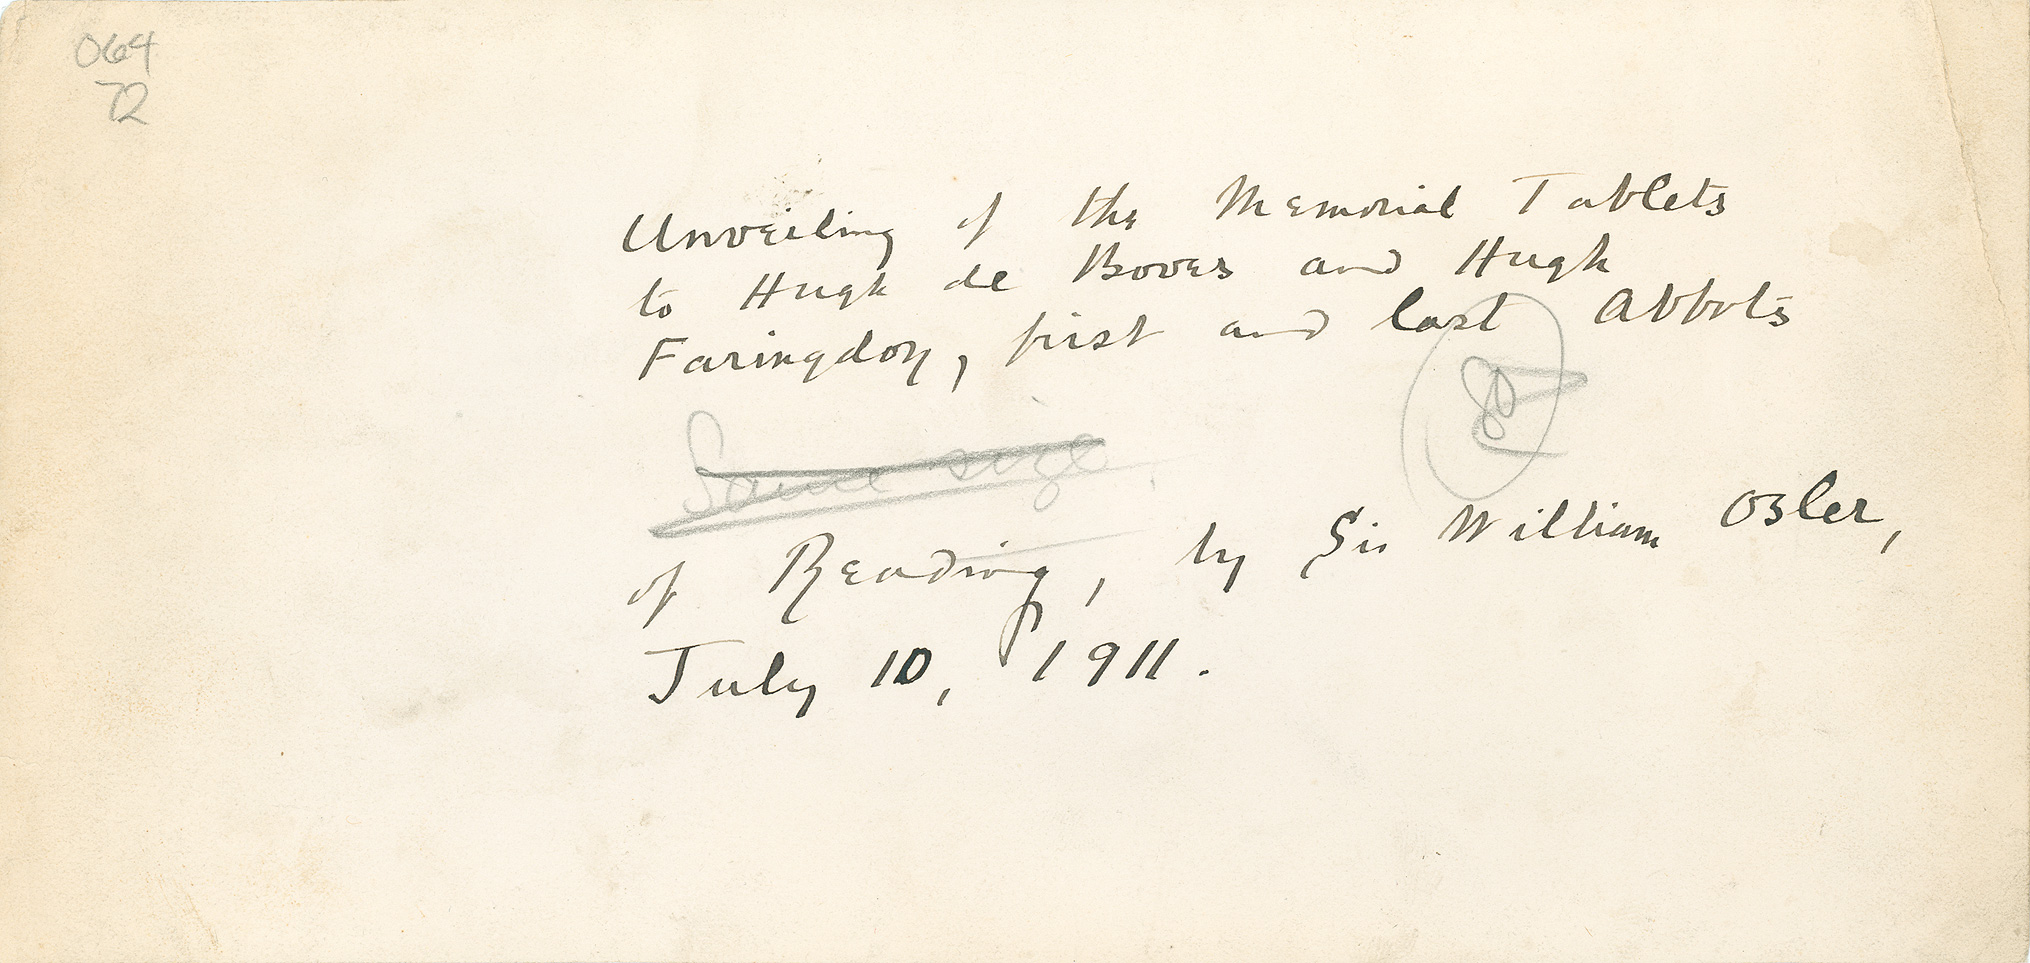 064
72
Unveiling of the Memorial Tablets
to Hugh de Boves and Hugh
Faringdon, first and last Abbots
80
Same size
of Reading, by Sir William Osler,
July 10, 1911.